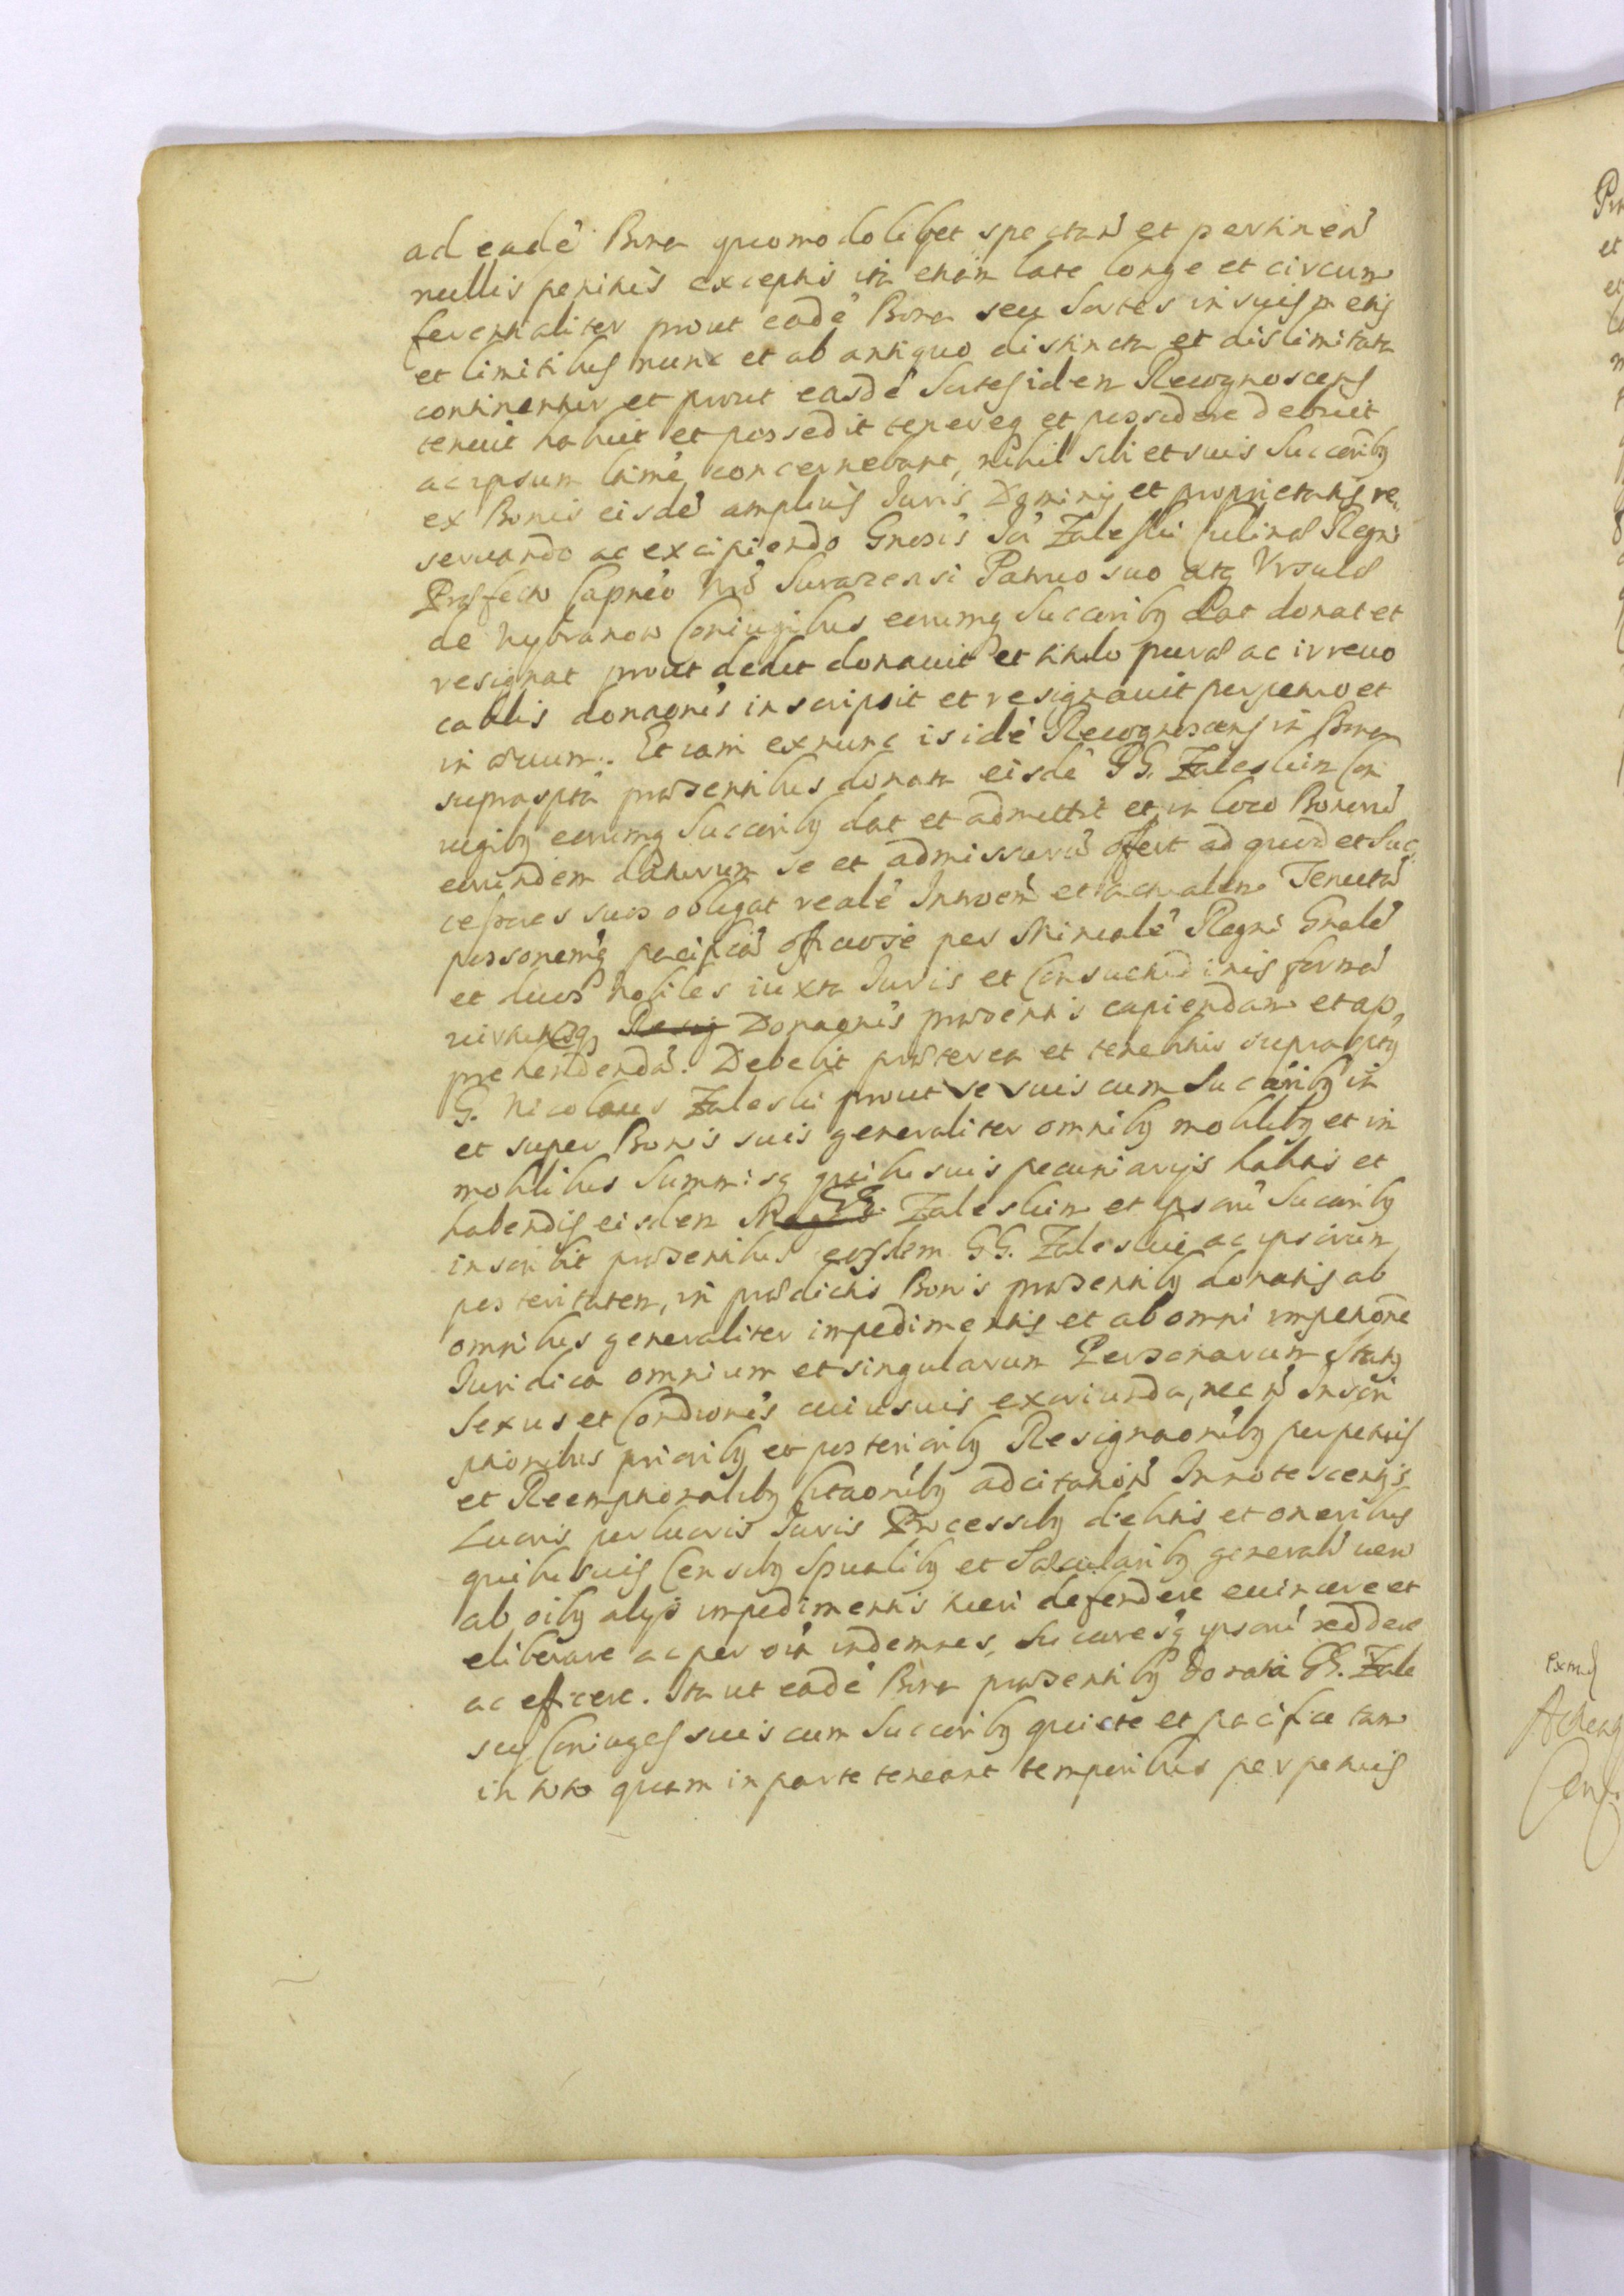 ad eadē Bona quomodolibet spectań et pertineń
nullis penitus exceptis ita etiam late longe et circum
ferentialiter prout eadē Bona seu Sortes in suis metis
et limitibus nunc et ab antiquo distincta et dislimitata
continentur et prout easdē Sortes idem Recognoscens
tenuit habuit et possedit tenereq et possidere debuit
ac ipsum concernebant, nihil sibi et suis Succorib9
ex Bonis eisdē amplius Juris Dominij et proprietatis re,
servando ac excipiendo Gnosis Zaleski Culinæ Regni
Præfecto Surazensi Patruo suo atq Ursula
de Coniugibus eorumq Succorib9 dat donat et
resignat prout dedit donavit et titulo puræ ac irrevo
cabilis donaonis inscripsit et resignavit perpetuo et
in ævum. Et iam exnunc is idē Recognoscens in Bona
supraspta præsentibus donata eisdē GG. Zaleskim Con
iugib9 eorumq Succorib9 dat et admittit et in loco Bonorū
eorundem daturum se et admissurū offert ad quod et Suc
cessores suos obligat realē Intromń et actualem Tenutā
possonemq pacificā officiose per Minrialē Regni Gnalē
et duos Nobiles iuxta Juris et Consuetudinis formā
Donaonis præsentis capiendam et ap,
prehendendā. Debebit præterea et tenebitur suprasptus
G. Nicolaus Zaleski prout se suis cum Succorib9 in
et super Bonis suis generaliter omnib9 mobilib9 et im
mobilibus Summisq quibusuis pecuniarijs habitis et
habendis eisdem GG. Zaleskim et ipsorū Succorib9
inscribit præsentibus eosdem GG. Zaleskie ac ipsorum
posteritatem, in prædictis Bonis præsentib9 donatis ab
omnibus generaliter impedimentis et ab omni impetione
Juridica omnium et singularum Personarum Status
Sexus et Condionis cuiusuis exoriunda, nec ń Inscri
ptionibus priorib9 et posteriorib9 Resignaonib9 perpetuis
et Reemptionalib9 Citaonib9 adcitationū Innotescentijs
Lucris perlucris Juris Processib9 debitis et oneribus
quibusuis Censib9 Spualib9 et Sæcularib9 generalr vero
ab oib9 alijs impedimentis tueri defendere euincere et
eliberare ac per oia indemnes, Succoresq ipsorū reddere
ac efficere. Ita ut eadē Bona præsentib9 donata GG. Zale
scij Coniuges suis cum Succorib9 quiete et pacifice tam
in toto quam in parte teneant temporibus perpetuis